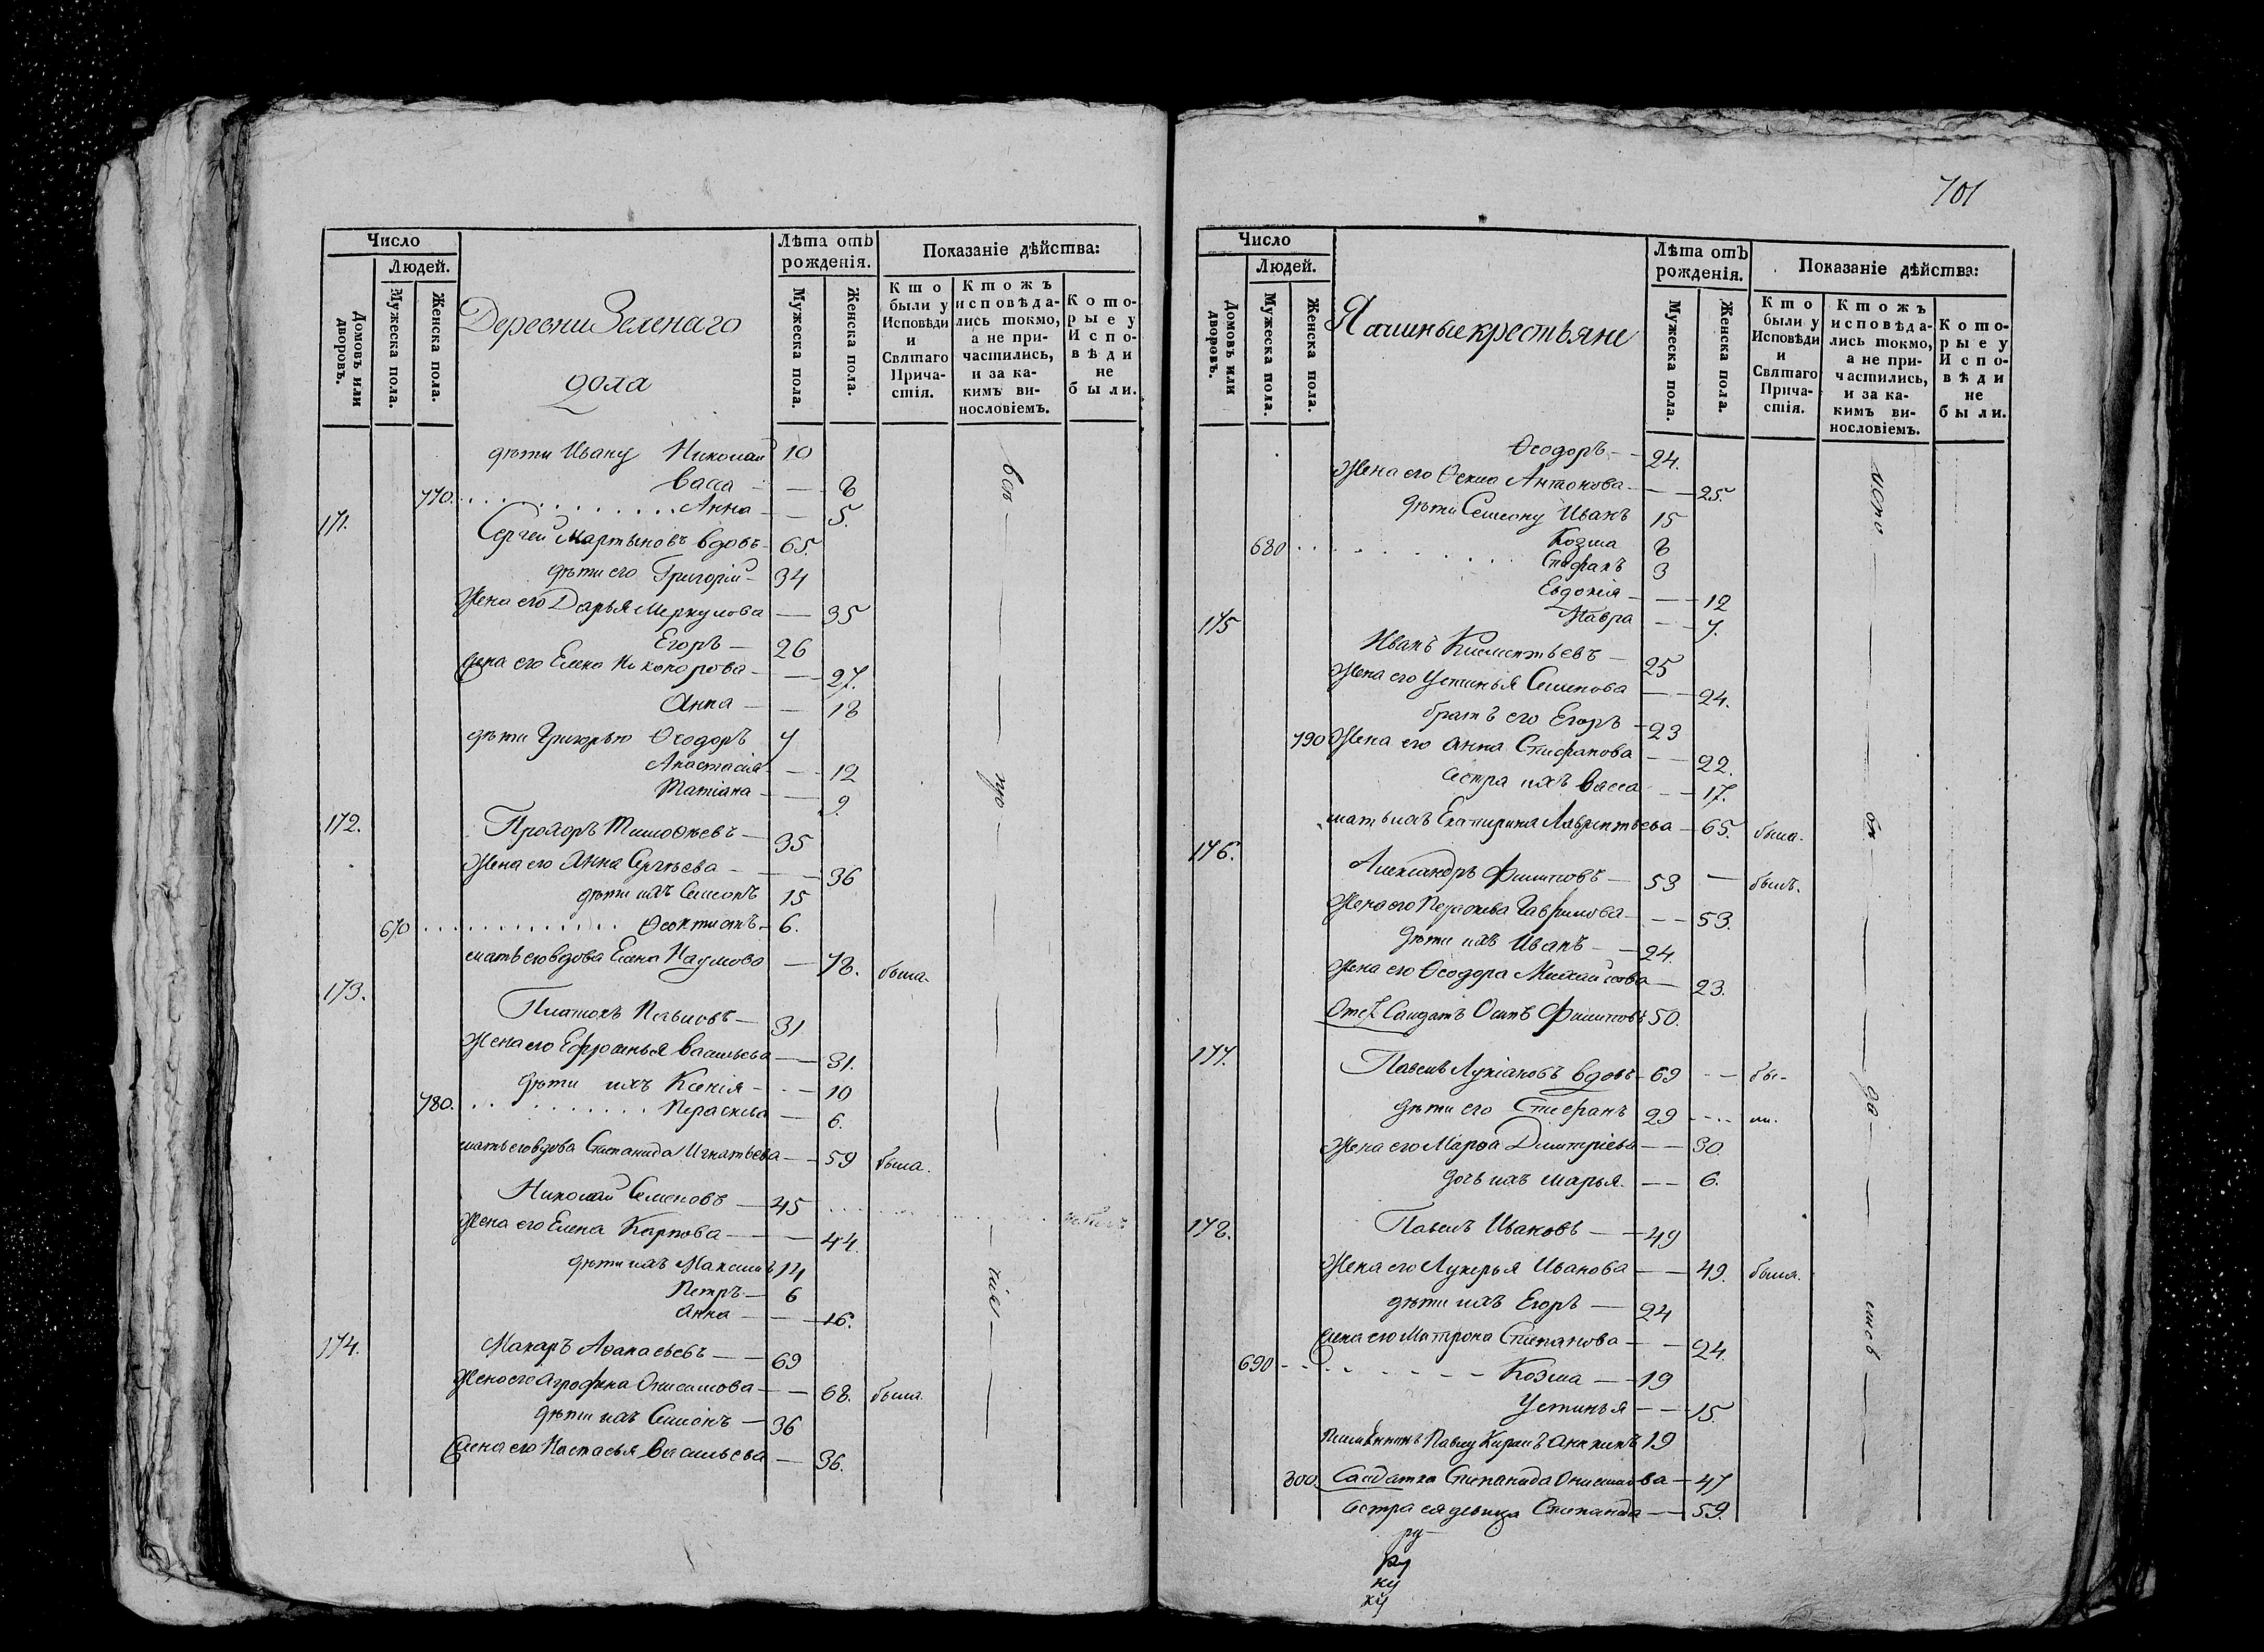 Число
Людей.
Домовъ или дворовъ.
Мужеска пола.
Женска пола.
Деревни Зеленаго
дола
Лѣта отъ
рожденія.
Мужеска пола.
Женска пола.
Показаніе дѣйства:
Кто
были у
Исповѣди
и
Святаго
Прича-
стія.
Ктожъ
исповѣда-
лись токмо,
а не при-
частились,
и за ка-
кимъ ви-
нословіемъ.
Кото-
рые у
Испо-
вѣди
не
были.
дѣти Ивану Николай 10
Васса — — 8
770. Анна — — 5.
171. Сергей Мартыновъ вдовъ 65.
дѣти его Григорій — 34
Жена его Дарья Меркулова — 35
Егоръ — 26
Жена его Елена Никонорова — — 27.
Анна — — 18
дѣти Григорью Ѳеодоръ 7
Анастасія — — 12
Татіана — — 9.
172. Прохоръ Тимоѳѣевъ — 35
Жена его Анна Сергѣева — — 36
дѣти ихъ Симеонъ 15
670 Ѳеоктистъ — 6.
мать его вдова Елена Наумова — 78. была.
173. Платонъ Павловъ — 31
Жена его Ефросинья Васильева — — 31.
дѣти ихъ Ксенія — — 10
780. Параскева — 6.
мать его вдова Степанида Игнатьева — — 59 была.
Николай Семеновъ — 45 не былъ
Жена его Елена Карпова — — 44.
дѣти ихъ Максимъ 14
Петръ — 6
Анна — — 16.
174. Макаръ Аѳанасьевъ — — 69
Жена его Агрофена Онисимова — — 68. была.
дѣти ихъ Симіонъ — 36
Жена его Настасья Васильева — 36.
всѣ —
при —
чія —
701
Число
Людей.
Домовъ или дворовъ.
Мужеска пола.
Женска пола.
Пашиныекрестьяне
Лѣта отъ
рожденія.
Мужеска пола.
Женска пола.
Показаніе дѣйства:
Кто
были у
Исповѣди
и
Святаго
Прича-
стія.
Ктожъ
исповѣда-
лись токмо,
а не при-
частились,
и за ка-
кимъ ви-
нословіемъ.
Кото-
рые у
Испо-
вѣди
не
были.
Ѳеодоръ — — 24.
Жена его Ѳекла Антонова — — 25.
дѣти Семіону Иванъ 15
680 Козма 8
Стефанъ 3
Евдокія — — 12
Мавра — — 7.
175 Иванъ Климентьевъ — 25
Жена его Устинья Семенова — — 24.
братъ его Егоръ — 23
790 Жена его Анна Стефанова — — 22.
сестра ихъ Васса — — 17.
мать ихъ Екатирина Лаврентьева — 65. была.
176. Александръ Филиповъ — 53 — былъ.
Жена его Параскева Гаврилова — — 53.
дѣти ихъ Иванъ — — 24.
Жена его Ѳеодора Михайлова — 23.
Отс. Салдатъ Осипъ Филиповъ 50.
177. Павелъ Лукіановъ вдовъ — 69 — бы-
дѣти его Стефанъ 29 ли.
Жена его Марѳа Дмитріева — — 30.
дочь ихъ Марья — — 6.
178. Павелъ Ивановъ — — 49
Жена его Лукерья Иванова — — 49. была.
дѣти ихъ Егоръ — 24
Жена его Матрона Степанова — — 24.
690 Козма — — 19
Устинья — — 15.
Павлу 19
800. Салдатка Степанида Онисимова — 47
Сестра ея девица Степанида — — 59.
ру
ру
ку
ку